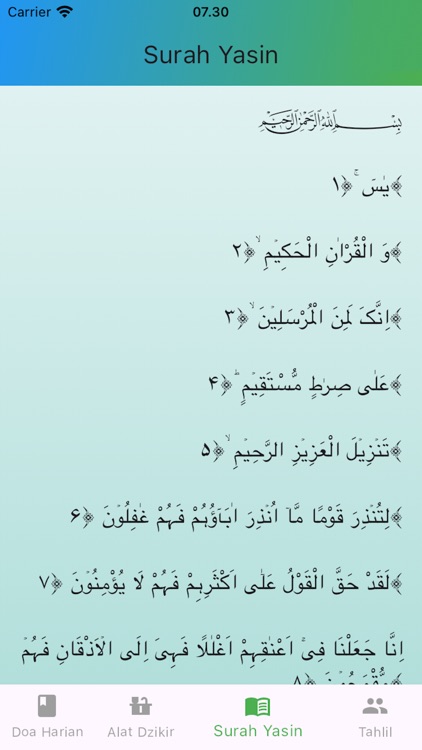 Carrier 07.30
Surah Yasin
﷽
﴾يٰسٓ ۚ ﴿۱
﴾وَ الْقُرْاٰنِ الْحَكِيْمِ ۙ ﴿۲
﴾اِنَّكَ لَمِنَ الْمُرْسَلِيْنَ ۙ ﴿۳
﴾عَلٰى صِرٰطٍ مُّسْتَقِيْمٍ ؕ ﴿۴
﴾تَنْزِيْلَ الْعَزِيْزِ الرَّحِيْمِ ۙ ﴿۵
﴾لِتُنْذِرَ قَوْمًا مَّاۤ اُنْذِرَ اٰبَآؤُهُمْ فَهُمْ غٰفِلُوْنَ ﴿۶
﴾لَقَدْ حَقَّ الْقَوْلُ عَلٰۤى اَكْثَرِهِمْ فَهُمْ لَا يُؤْمِنُوْنَ ﴿۷
اِنَّا جَعَلْنَا فِىْۤ اَعْنَاقِهِمْ اَغْلٰلًا فَهِىَ اِلَى الْاَذْقَانِ فَهُمْ
Doa Harian Alat Dzikir Surah Yasin Tahlil